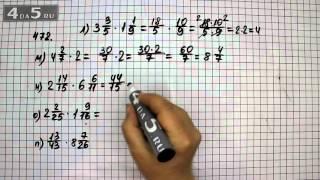 4DA5.RU
472.
л) 3 3/5 · 1 1/9 = 18/5 · 10/9 = 18·10/5·9 = 2·2 = 4
м) 4 2/7 · 2 = 30/7 · 2 = 30·2/7 = 60/7 = 8 4/7
н) 2 14/15 · 6 6/11 = 44/15
о) 2 2/25 · 1 9/16 =
п) 13/43 · 8 7/26